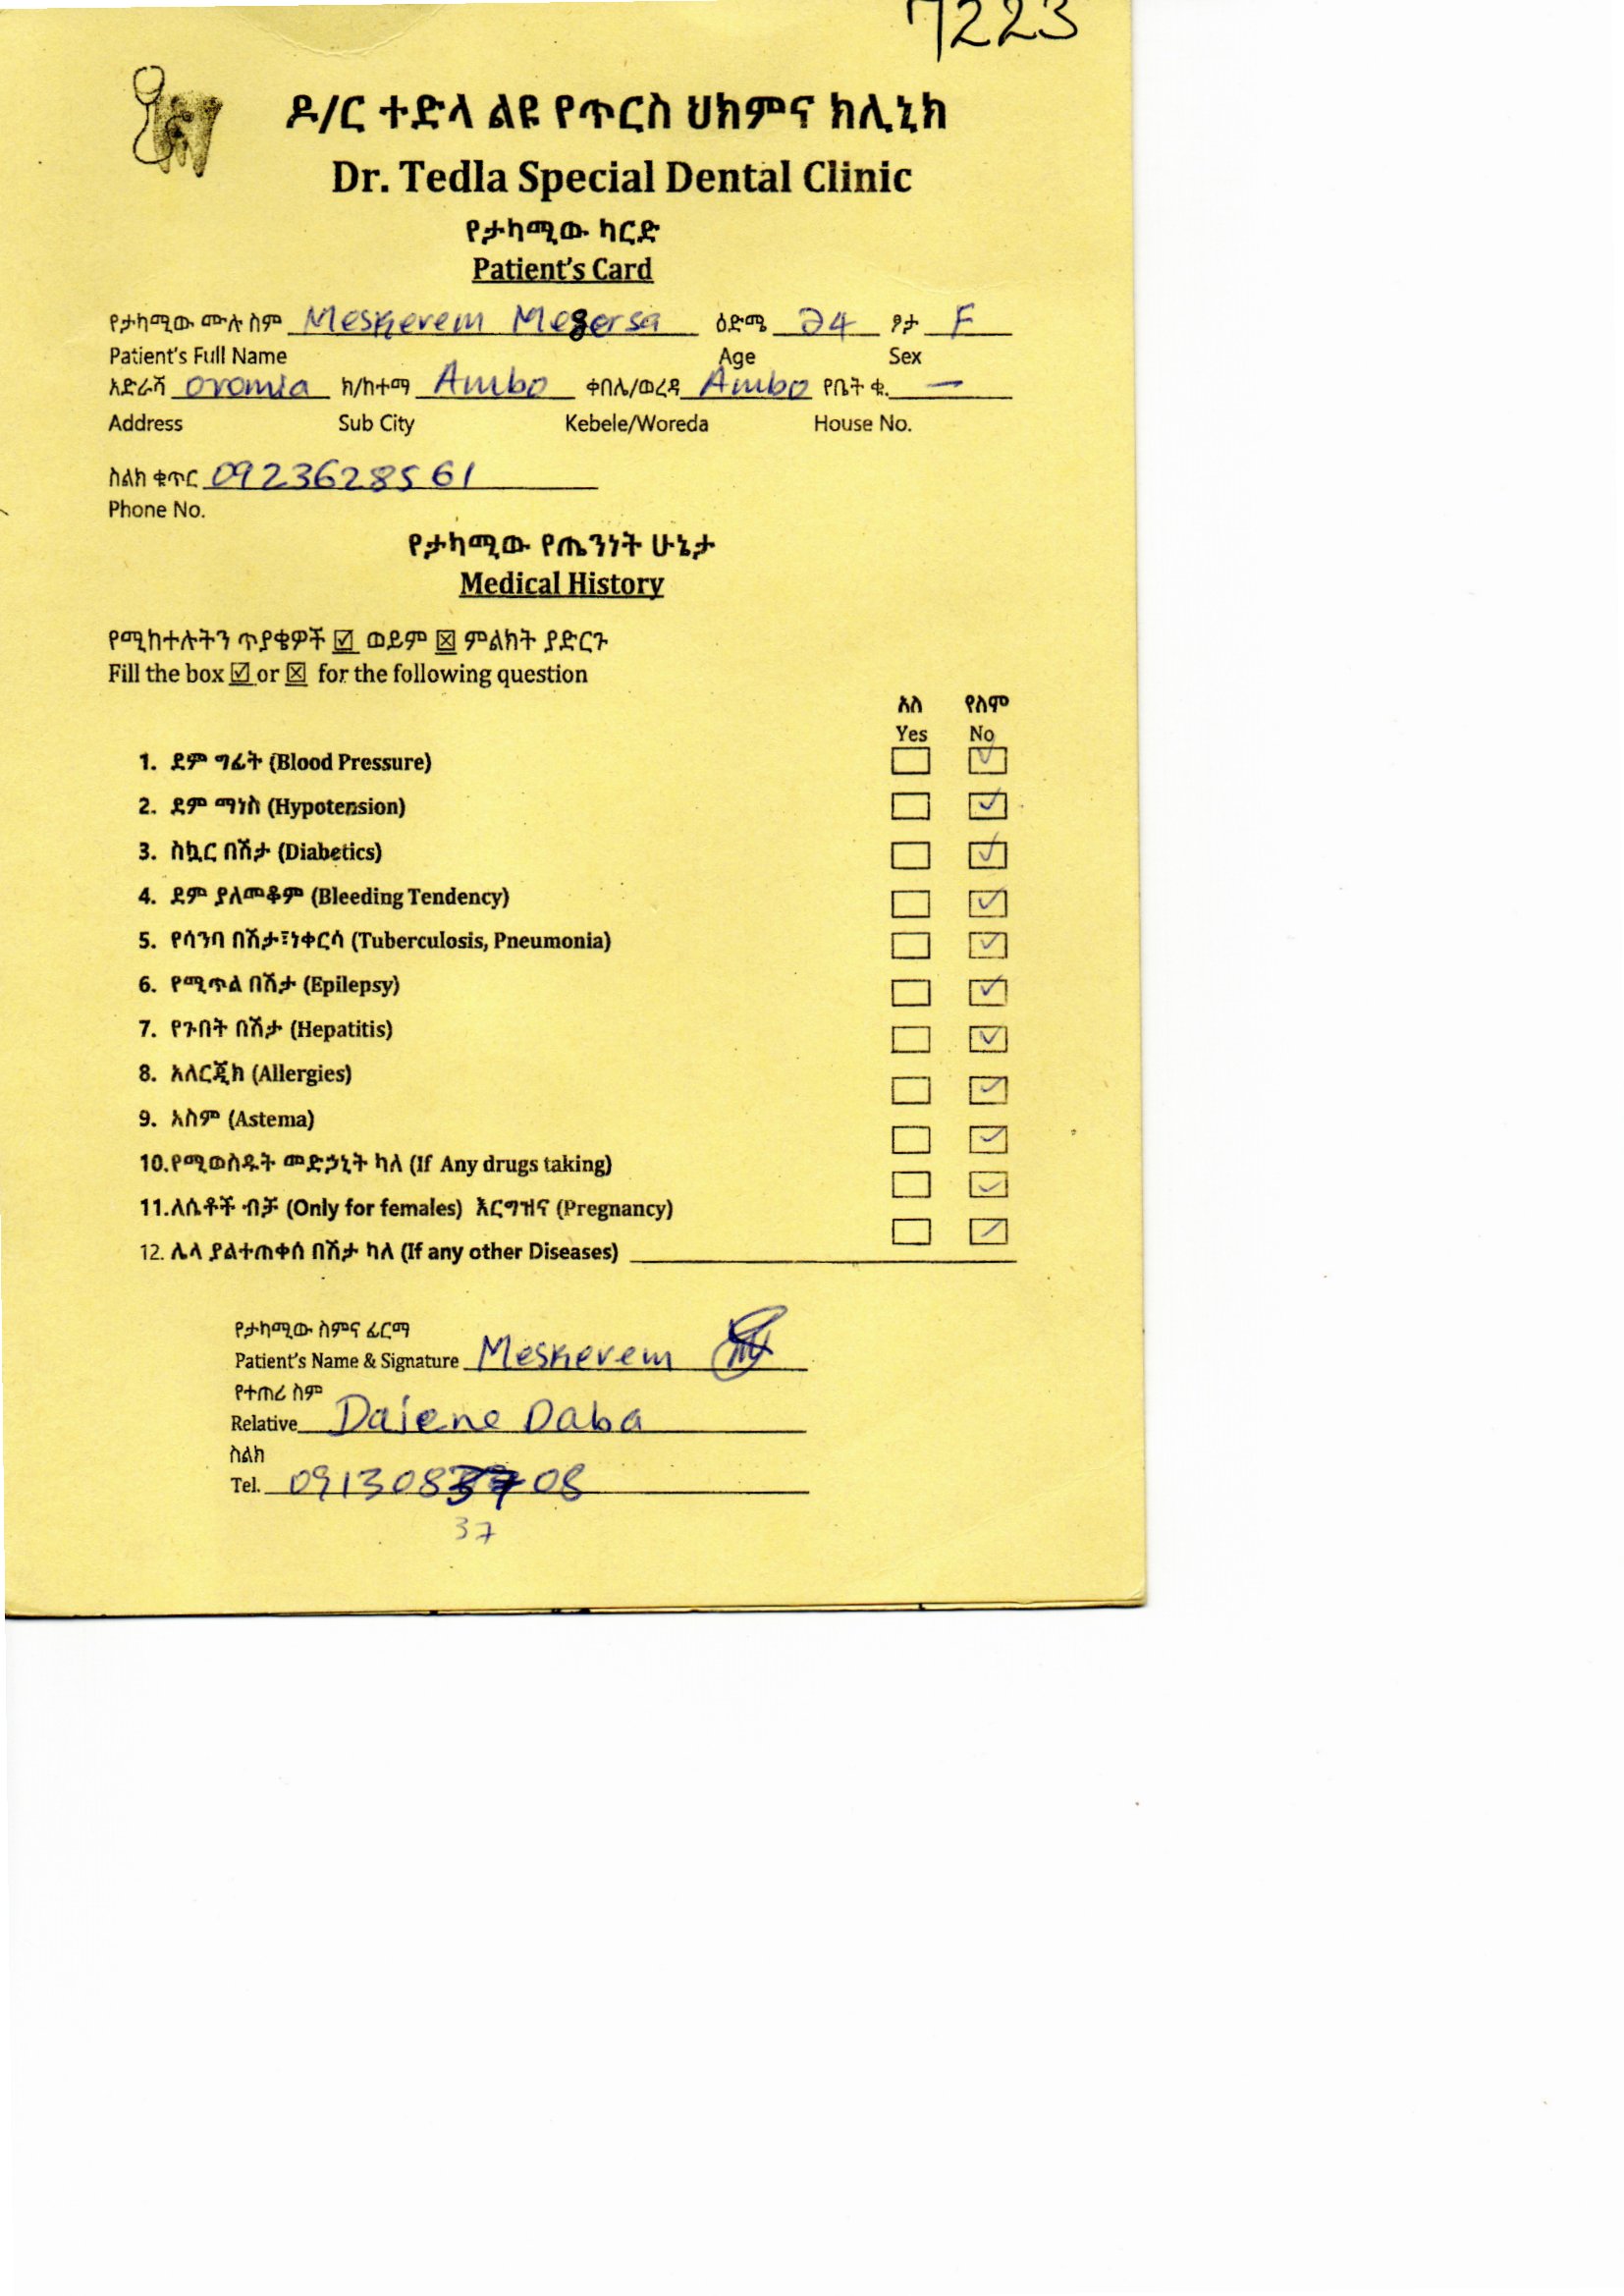 7223
ዶ/ር ተድላ ልዩ የጥርስ ህክምና ክሊኒክ
Dr. Tedla Special Dental Clinic
የታካሚው ካርድ
Patient's Card
የታካሚው ሙሉ ስም Meskerem Megersa ዕድሜ 24 ፆታ F
Patient's Full Name Age Sex
አድራሻ oromia ክ/ከተማ Ambo ቀበሌ/ወረዳ Ambo የቤት ቁ. —
Address Sub City Kebele/Woreda House No.
ስልክ ቁጥር 0923628561
Phone No.
የታካሚው የጤንነት ሁኔታ
Medical History
የሚከተሉትን ጥያቄዎች ☑ ወይም ☒ ምልክት ያድርጉ
Fill the box ☑ or ☒ for the following question
አለ የለም
Yes No
1. ደም ግፊት (Blood Pressure) ☐ ☑
2. ደም ማነስ (Hypotension) ☐ ☑
3. ስኳር በሽታ (Diabetics) ☐ ☑
4. ደም ያለመቆም (Bleeding Tendency) ☐ ☑
5. የሳንባ በሽታ፣ነቀርሳ (Tuberculosis, Pneumonia) ☐ ☑
6. የሚጥል በሽታ (Epilepsy) ☐ ☑
7. የጉበት በሽታ (Hepatitis) ☐ ☑
8. አለርጂክ (Allergies) ☐ ☑
9. አስም (Astema) ☐ ☑
10.የሚወስዱት መድኃኒት ካለ (If Any drugs taking) ☐ ☑
11.ለሴቶች ብቻ (Only for females) እርግዝና (Pregnancy) ☐ ☑
12. ሌላ ያልተጠቀሰ በሽታ ካለ (If any other Diseases)
የታካሚው ስምና ፊርማ
Patient's Name & Signature Meskerem
የተጠሪ ስም
Relative Dajene Daba
ስልክ
Tel. 0913083708
37